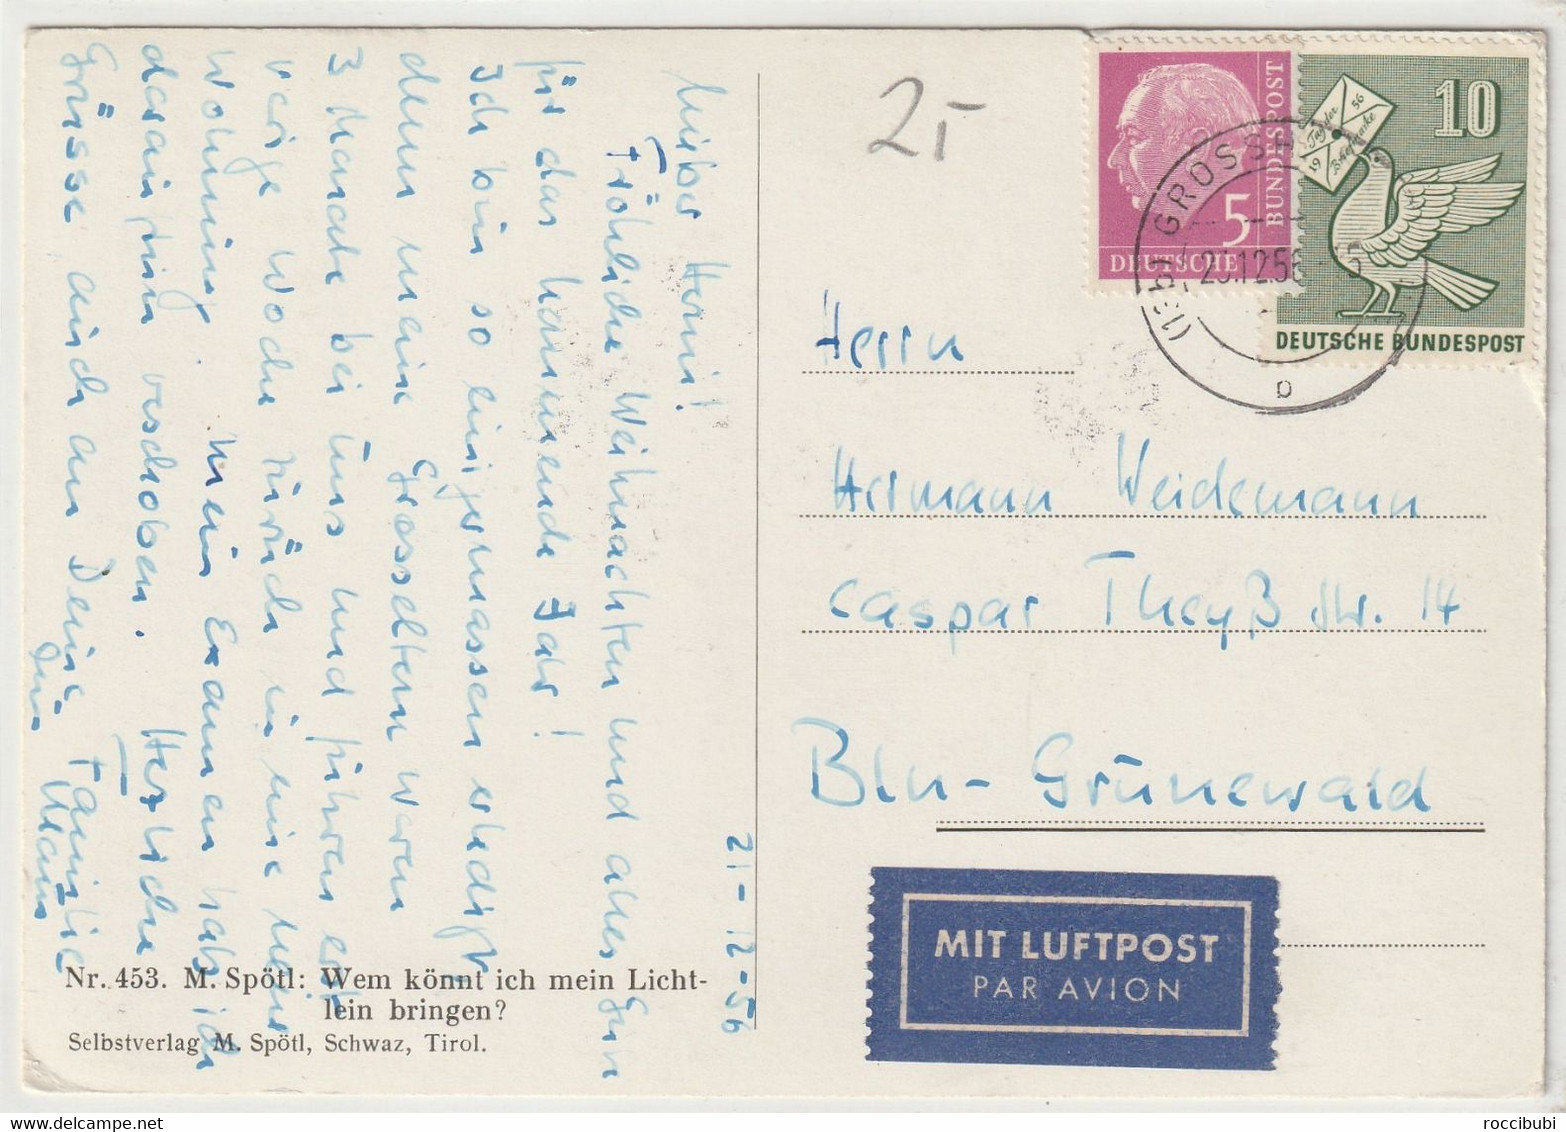 21-12-56
Lieber Herm!
Fröhliche Weihnachten und alles Gute
für das kommende Jahr!
Ich bin so einigermassen erledigt,
denn meine Grosseltern waren
3 Monate bei uns und fuhren erst
vorige Woche zurück in eine neue
Wohnung. Mein Examen hab ich
daraufhin verschoben. Herzliche
Grüsse auch an Deine Familie
Dein
Nr. 453. M. Spötl: Wem könnt ich mein Licht-
lein bringen?
Selbstverlag M. Spötl, Schwaz, Tirol.
2,-
5
DEUTSCHE
BUNDESPOST
10
Tag der
Briefmarke
19 56
DEUTSCHE BUNDESPOST
GROSSH
12.56
b
Herrn
Hermann Weidemann
Caspar Theyß Str. 14
Bln-Grunewald
MIT LUFTPOST
PAR AVION
roccibubi